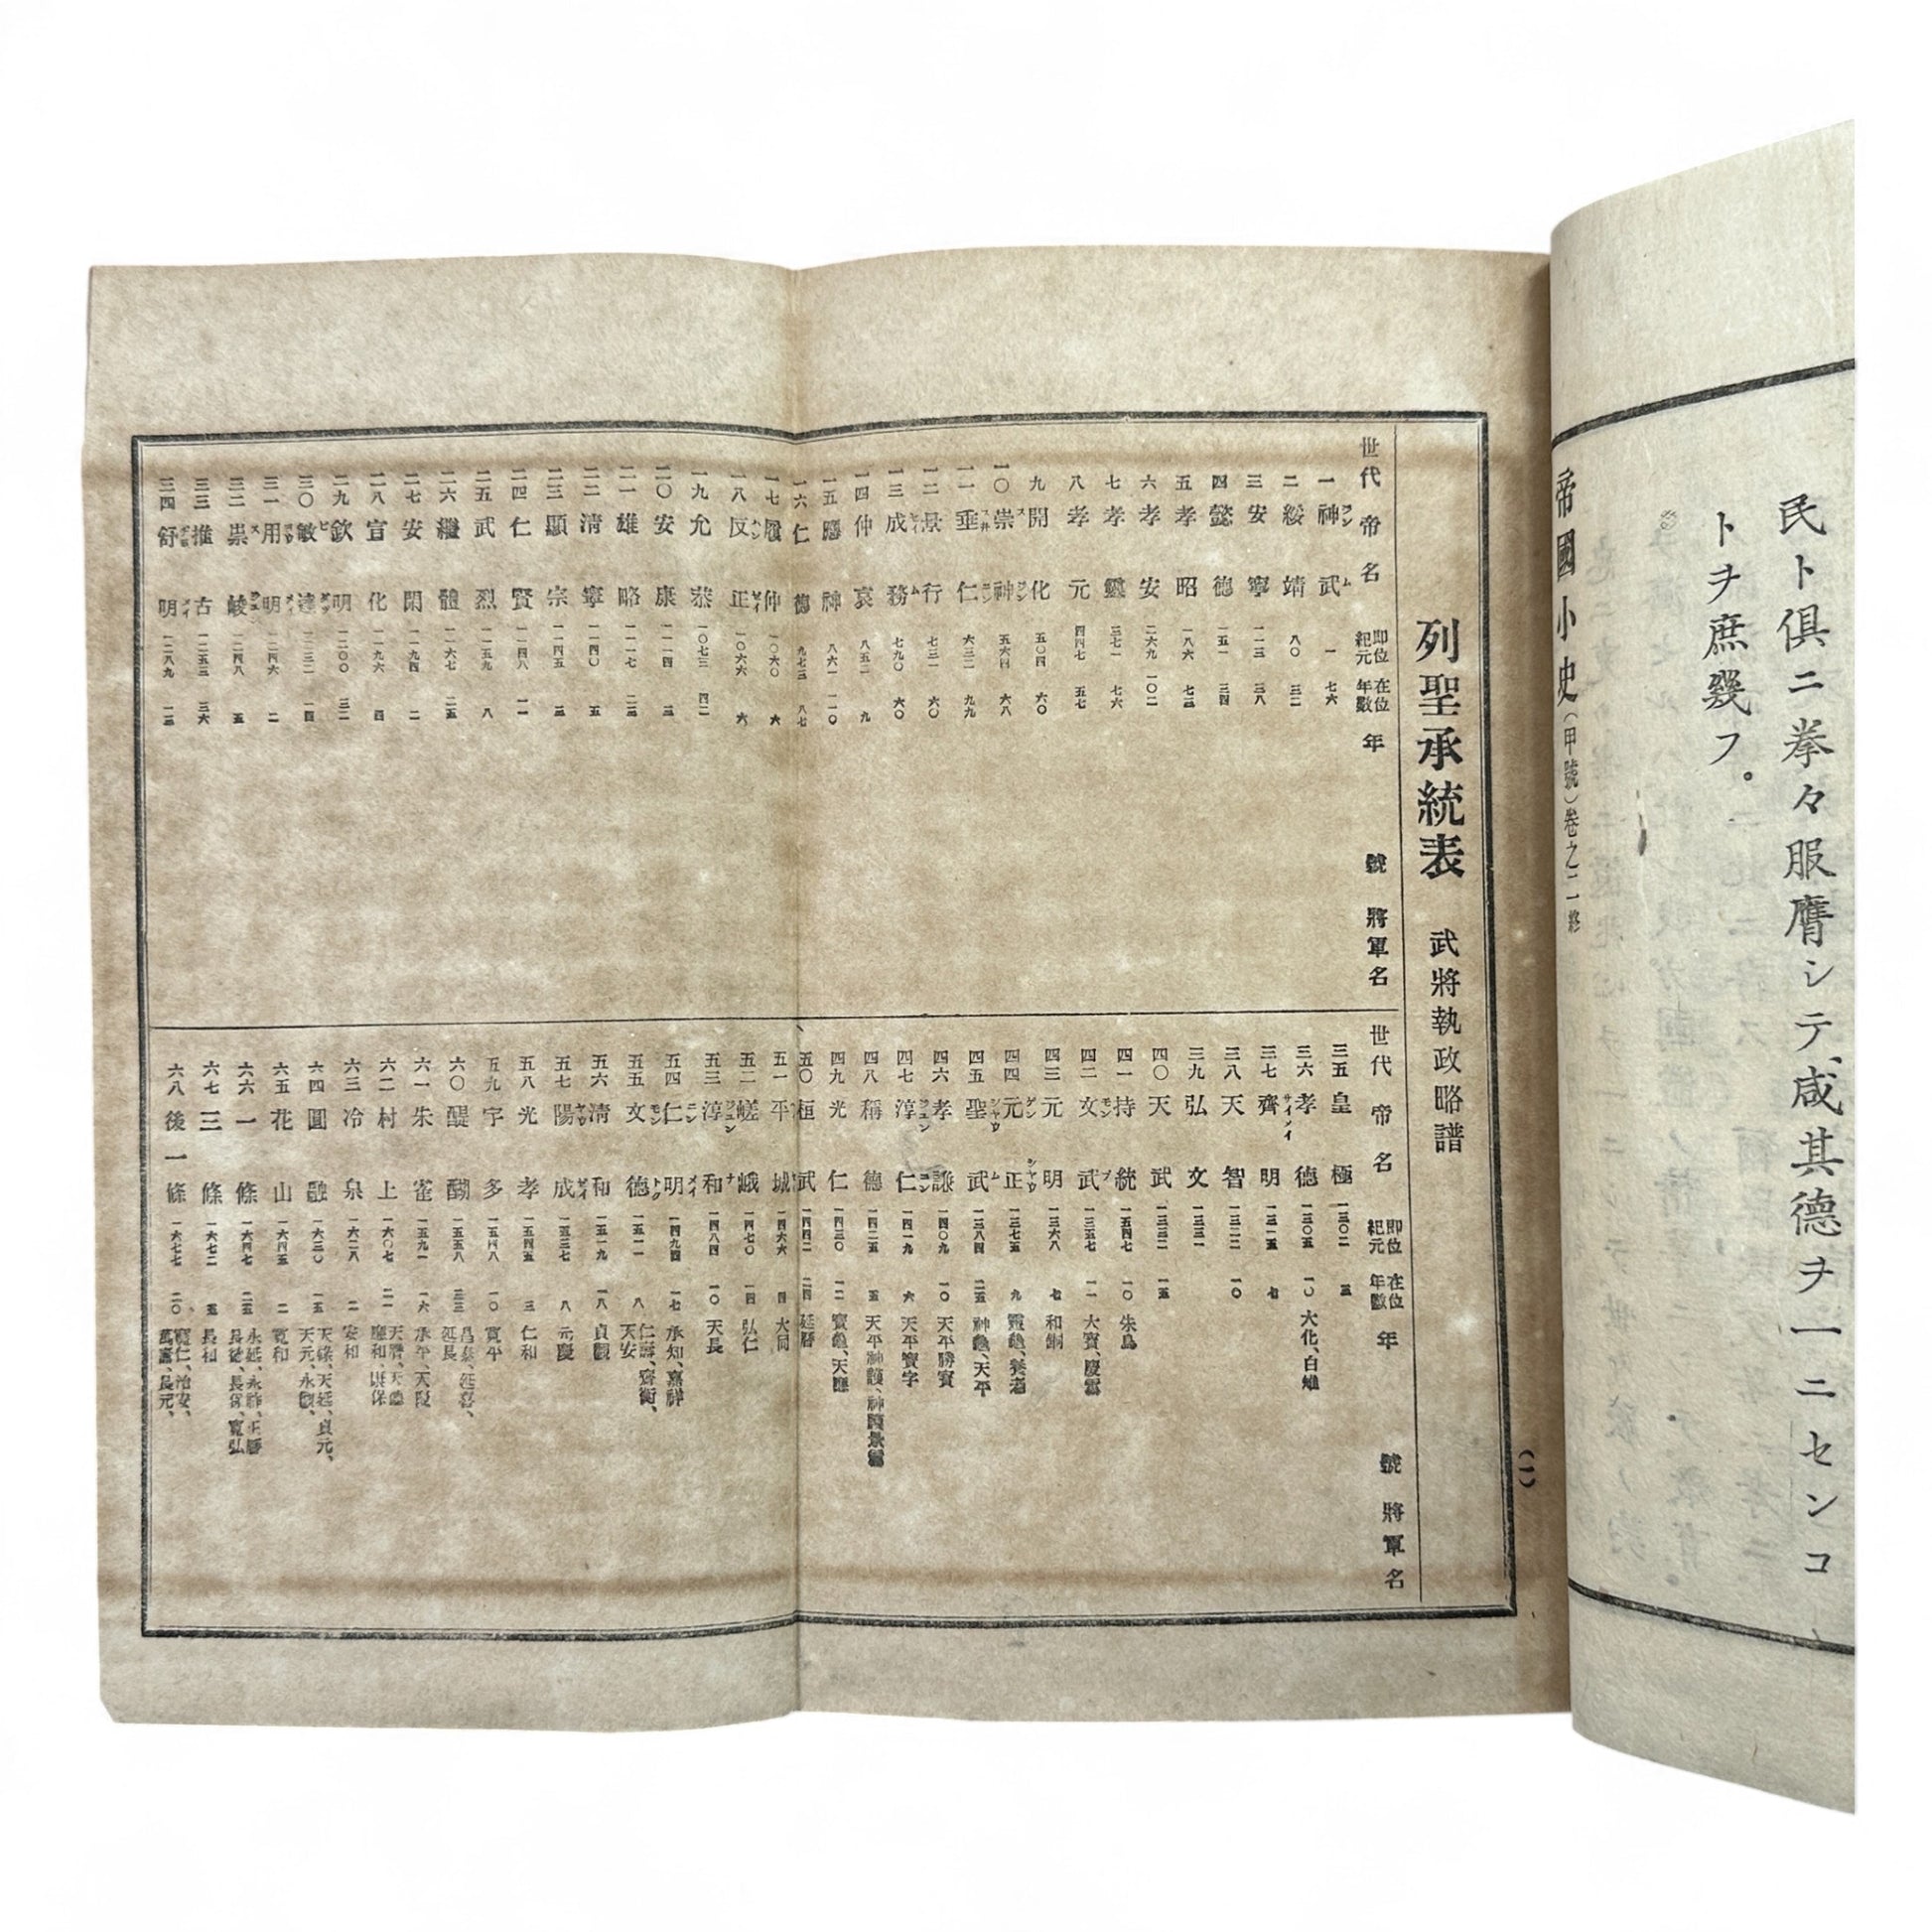 民ト俱ニ拳々服膺シテ、咸其德ヲ一ニセンコ
トヲ庶幾フ。
帝國小史(甲號)卷之二終
(一)
列聖承統表 武將執政略譜
世代 帝名 即位紀元 在位年數 年號 將軍名
一 神武 一 七六
二 綏靖 八〇 三二
三 安寧 一一三 三八
四 懿德 一五一 三四
五 孝昭 一八六
六 孝安 二六九 一〇二
七 孝靈 三七一 七六
八 孝元 四四七 五七
九 開化 五〇四 六〇
一〇 崇神 五六四 六八
一一 垂仁 六三二 九九
一二 景行 七三一 六〇
一三 成務 七九〇 六〇
一四 仲哀 八五二 九
一五 應神 八六一 一一〇
一六 仁德 九七三 八七
一七 履仲 一〇六〇 六
一八 反正 一〇六六 六
一九 允恭 一〇七三 四二
二〇 安康 一一一四 三
二一 雄略 一一一七 二三
二二 清寧 一一四〇 五
二三 顯宗 一一四五 三
二四 仁賢 一一四八 一一
二五 武烈 一一五九 八
二六 繼體 一一六七 二五
二七 安閑 一一九四 二
二八 宣化 一一九六 四
二九 欽明 一二〇〇 三二
三〇 敏達 一二三二 一四
三一 用明 一二四六 二
三二 崇峻 一二四八 五
三三 推古 一二五三 三六
三四 舒明 一二八九 一三
世代 帝名 即位紀元 在位年數 年號 將軍名
三五 皇極 一三〇二 三
三六 孝德 一三〇五 一〇 大化、白雉
三七 齊明 一三一五 七
三八 天智 一三二二 一〇
三九 弘文 一三三一
四〇 天武 一三三二 一五
四一 持統 一五四七 一〇 朱鳥
四二 文武 一三五七 一一 大寶、慶雲
四三 元明 一三六八 七 和銅
四四 元正 一三七五 九 靈龜、養老
四五 聖武 一三八四 二五 神龜、天平
四六 孝謙 一四〇九 一〇 天平勝寶
四七 淳仁 一四一九 六 天平寶字
四八 稱德 一四二五 五 天平神護、神護景雲
四九 光仁 一四三〇 一二 寶龜、天應
五〇 桓武 一四四二 二四 延曆
五一 平城 一四六六 四 大同
五二 嵯峨 一四七〇 一四 弘仁
五三 淳和 一四八四 一〇 天長
五四 仁明 一四九四 一七 承知、嘉祥
五五 文德 一五一一 八 仁壽、齊衡、天安
五六 清和 一五一九 一八 貞觀
五七 陽成 一五三七 八 元慶
五八 光孝 一五四五 三 仁和
五九 宇多 一五四八 一〇 寬平
六〇 醍醐 一五五八 三三 昌泰、延喜、延長
六一 朱雀 一五九一 一六 承平、天慶
六二 村上 一六〇七 二一 天曆、天德 應和、康保
六三 冷泉 一六二八 二 安和
六四 圓融 一六三〇 一五 天祿、天延、貞元、天元、永觀、
六五 花山 一六四五 二 寬和
六六 一條 一六四七 二五 永延、永祚、正曆 長德、長保、寬弘
六七 三條 一六七二 五 長和
六八 後一條 一六七七 二〇 寬仁、治安、萬壽、長元、